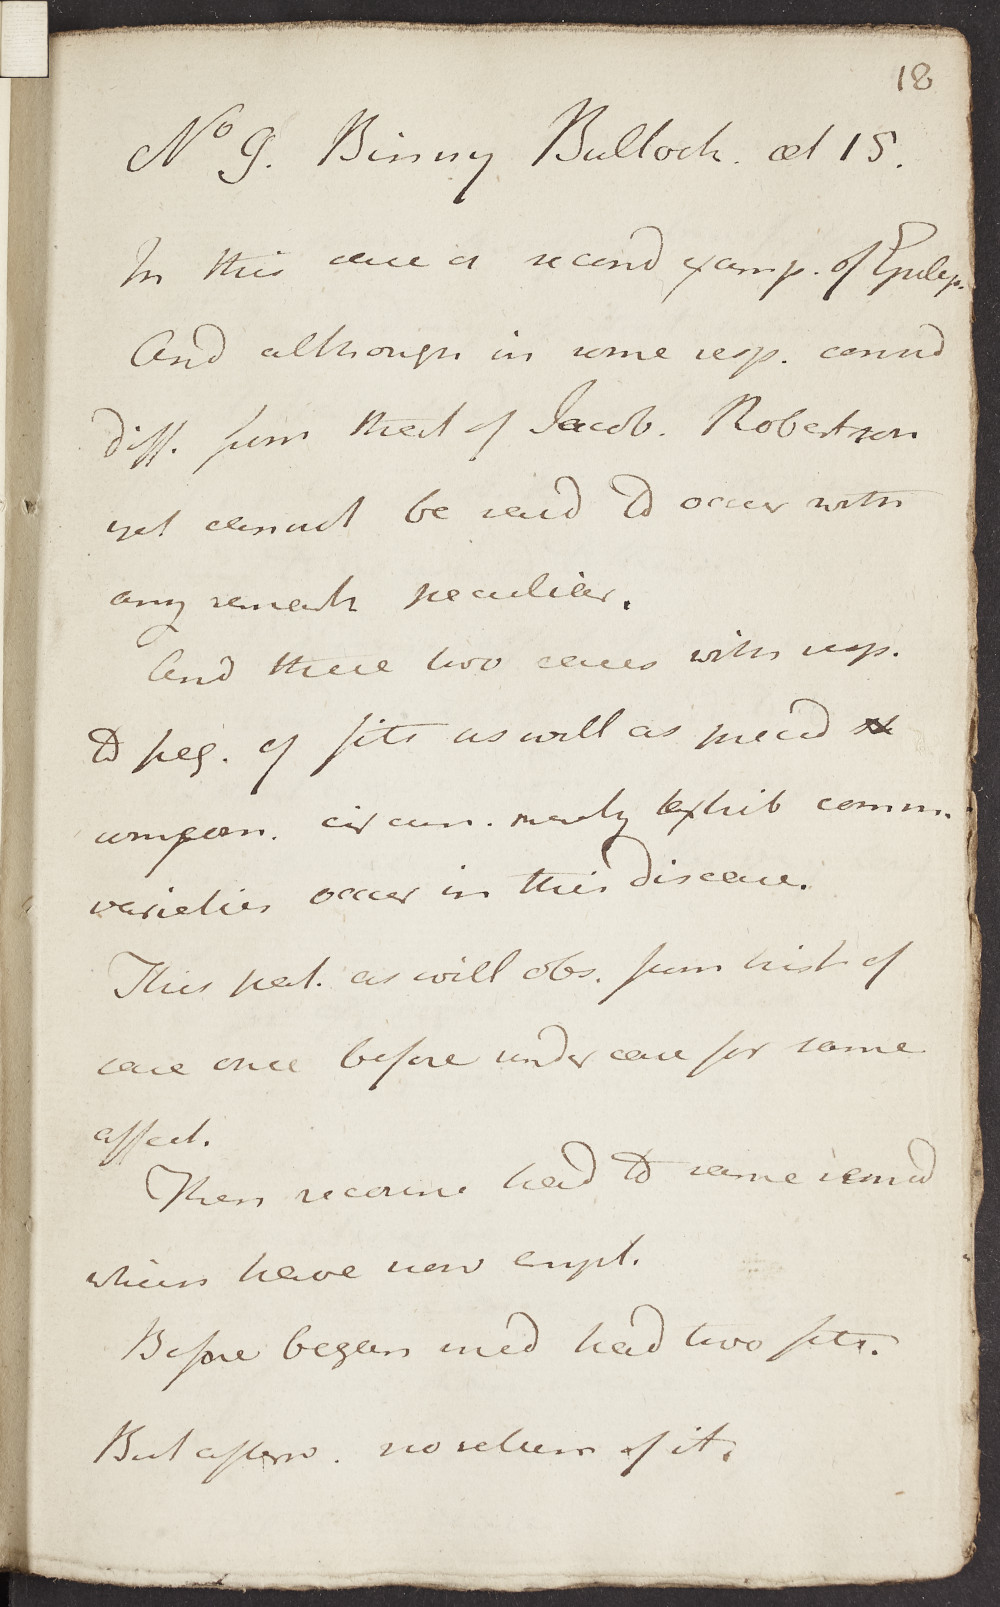 18
No 9. Binny Bulloch. æt 15.
In this case a second examp. of Epilep.
And although in some resp. consid
diff. from that of Jacob. Robertson
yet cannot be said to occur with
any remark peculiar.
And these two cases with resp.
to freq. of fits as well as preced
accompan. circum. merely exhib comm.
varieties occur in this disease.
This pat. as will obs. from hist of
case once before under care for same
affect.
Then recourse had to same remed
which have now empl.
Before began med had two fits.
But afterw. no return of it.